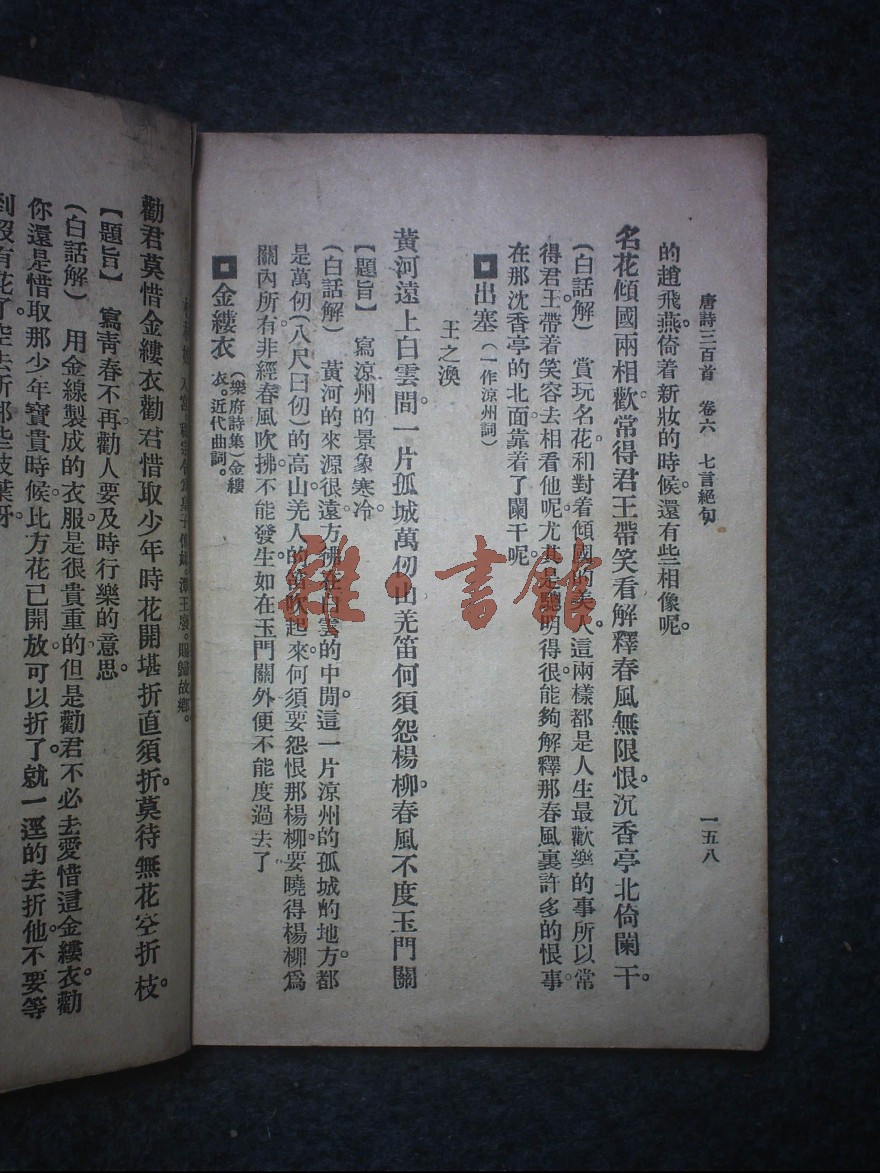 唐詩三百首 卷六 七言絕句 一五八
的趙飛燕。倚着新妝的時候。還有些相像呢。
名花傾國兩相歡。常得君王帶笑看。解釋春風無限恨。沉香亭北倚闌干。
(白話解) 賞玩名花。和對着傾國的美人。這兩樣都是人生最歡樂的事。所以常
得君王帶着笑容。去相看他呢。尤其是聰明得很。能夠解釋那春風裏許多的恨事。
在那沈香亭的北面。靠着了闌干呢。
出塞 (一作涼州詞)
王之渙
黃河遠上白雲間。一片孤城萬仞山。羌笛何須怨楊柳。春風不度玉門關
【題旨】 寫涼州的景象寒冷。
(白話解) 黃河的來源很遠。方彿在白雲的中閒。這一片涼州的孤城的地方。都
是萬仞(八尺曰仞)的高山。羌人的笛吹起來。何須要怨恨那楊柳。要曉得楊柳爲
關內所有。非經春風吹拂。不能發生。如在玉門關外。便不能度過去了
金縷衣 (樂府詩集)金縷
衣。近代曲詞。
勸君莫惜金縷衣。勸君惜取少年時。花開堪折直須折。莫待無花空折枝。
【題旨】 寫青春不再。勸人要及時行樂的意思。
(白話解) 用金線製成的衣服。是很貴重的。但是勸君不必去愛惜這金縷衣。勸
你還是惜取那少年寶貴時候。比方花已開放。可以折了。就一逕的去折他。不要等
到沒有花了。空去折那些枝葉呀。
雅·書館